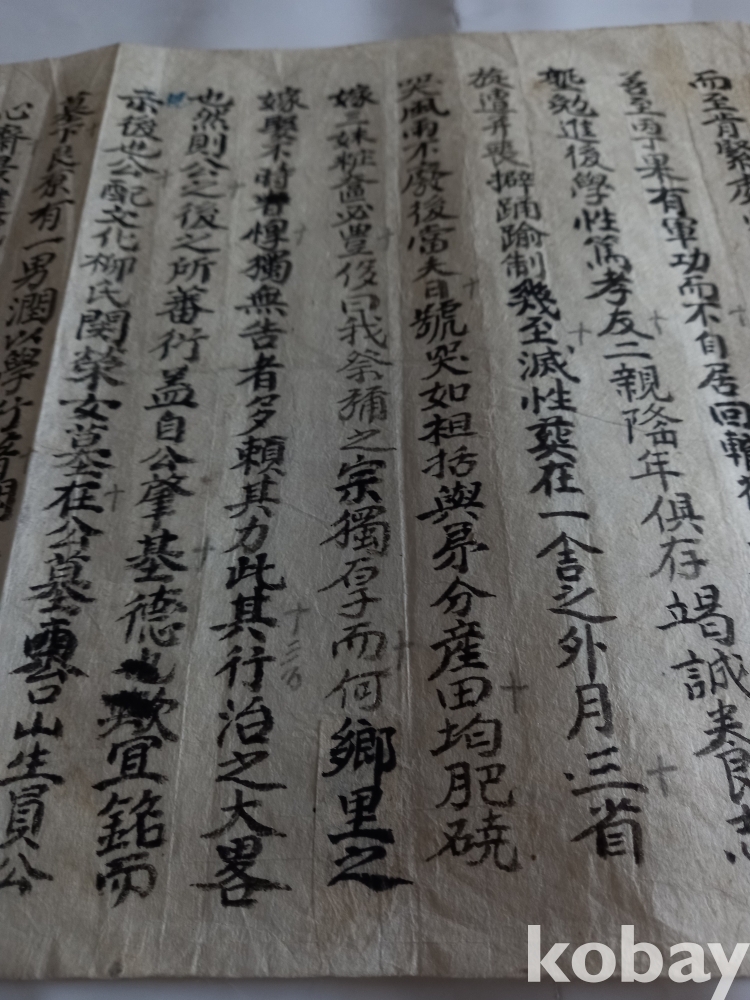 而至肯緊
至丙丁果有軍功而不自居回
勉進後學性篤孝友二親隆年俱存竭誠
旋遭并喪擗踊踰制幾至滅性葬在一舍之外月三省
哭風雨不廢後當夫目號哭如袒括與弟分産田均肥磽
嫁三妹粧奩必豊後曰我祭禰之宗獨厚而何鄉里之
嫁娶不時者惸獨無告者多賴其力此其行治之大畧
也然則公之後之所蕃衍盖自公肇基德也歟宜銘而
示後也公配文化柳氏閔榮女墓在公墓台山生員公
墓下良原有一男潤以學行
心齋
kobay